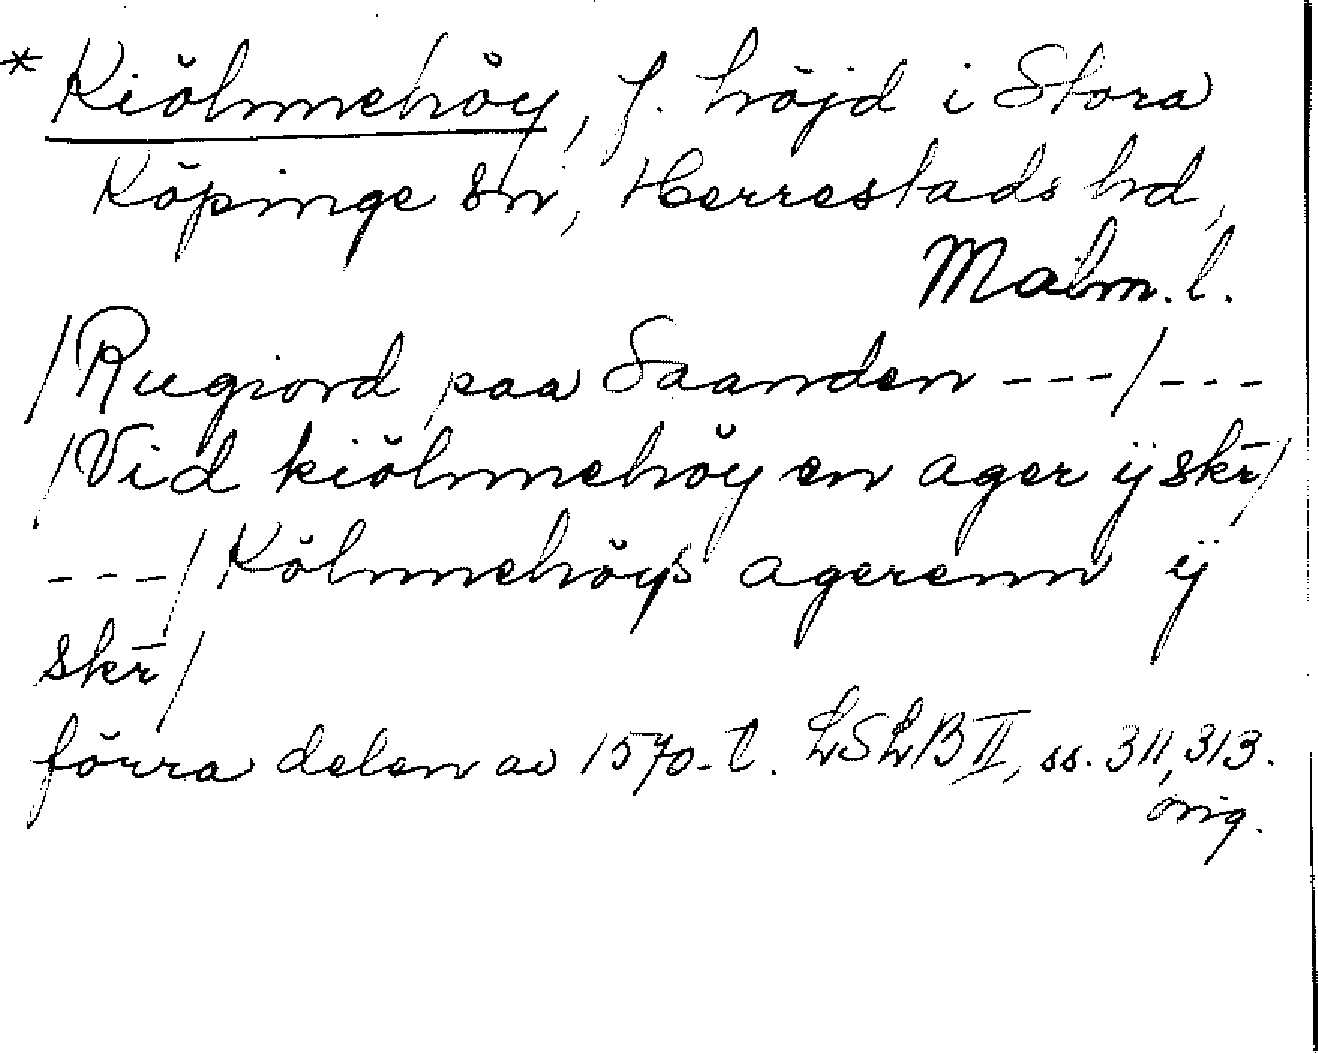 * Kiŏlmmehŏy, f. höjd i Stora
Köpinge sn, Herrestads hd,
Malm. l.
/Rugiord paa Saanden ---/---
/Vid kiŏlmmehŏy en ager ÿ skr̄/
---/Kŏlmmehŏys agerenn ÿ
skr̄/
förra delen av 1570-t. LSLB II, ss. 311, 313.
orig.